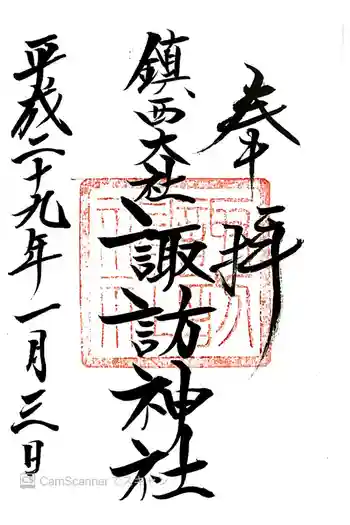 奉拝
鎮西大社諏訪神社
平成二十九年一月三日
CamScanner でスキャン